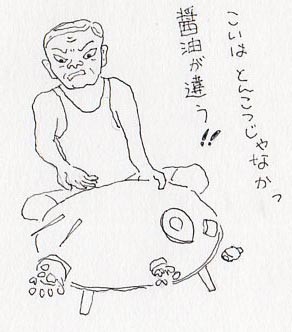 こいは とんこつじゃなかっ
醤油が違う!!